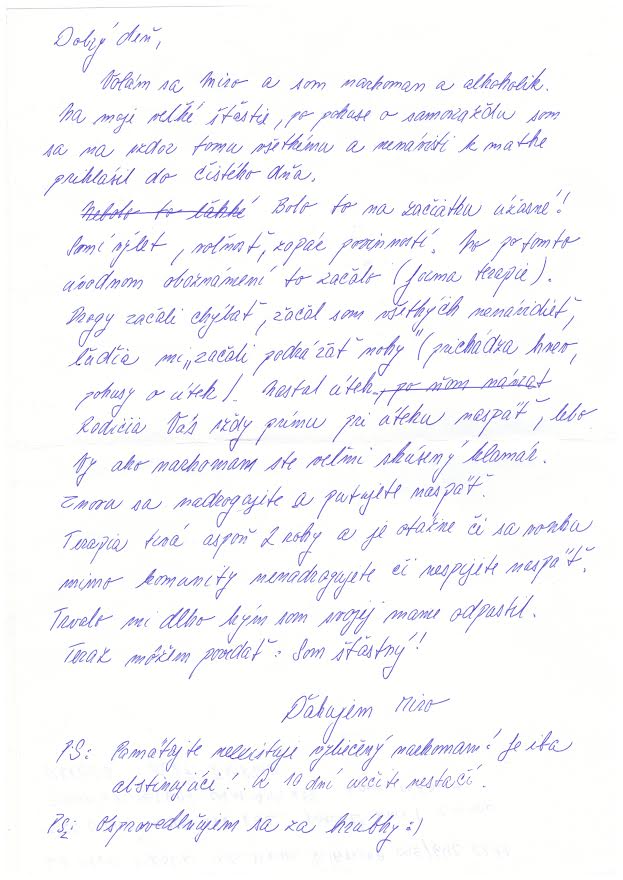 Dobrý deň,
Volám sa Miro a som narkoman a alkoholik.
Na moje veľké šťastie, po pokuse o samovraždu som
sa na vzdor tomu všetkému a nenávisti k matke
prihlásil do čistého dňa.
Nebolo to ľahké Bolo to na začiatku úžasné!
Samí výlet, voľnosť, zopár povinností. No po tomto
úvodnom oboznámení to začalo (forma terapie).
Drogy začali chýbať, začal som všetkých nenávidieť,
ľuďia mi „začali podrážať nohy" (prichádza hnev,
pokusy o útek). Nastal útek, po ňom návrat
Rodičia Vás vždy prímu pri úteku naspäť, lebo
Vy ako narkoman ste veľmi skúsený klamár.
Znova sa nadrogujete a putujete naspäť.
Terapia trvá aspoň 2 roky a je otázne či sa vonku
mimo komunity nenadrogujete či nespijete naspäť.
Trvalo mi dlho kým som svojej mame odpustil.
Teraz môžem povedať: Som šťastný!
Ďakujem Miro
PS: Pamätajte neexistuje vyliečený narkoman! Je iba
abstinujúci! A 10 dní určite nestačí.
PS2: Ospravedlňujem sa za hrúbky :)